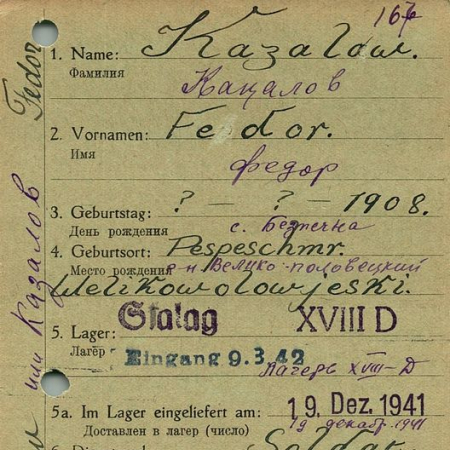 167
1. Name: Kazalow.
Фамилия
Кацалов
2. Vornamen: Feodor.
Имя
федор
3. Geburtstag: ? — ? — 1908.
День рождения
4. Geburtsort: Pespeschmr.
Место рождения р-н Велико-половецкий
Welikowolowjeski.
5. Lager: Stalag XVIII D
Лагерь Eingang 9.3.42
Лагерь XVIII-D
5a. Im Lager eingeliefert am: 19. Dez. 1941
Доставлен в лагерь (число) 19 декабр. 1941
Soldat
Fedor
или Казалов